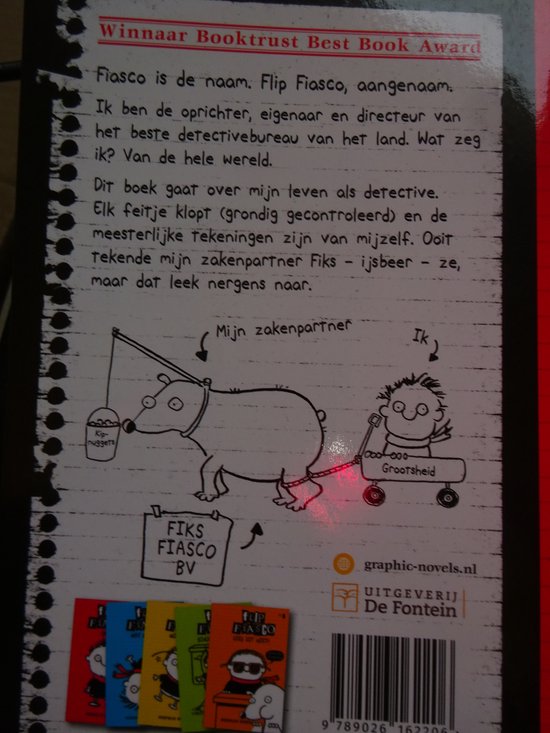 Winnaar Booktrust Best Book Award
Fiasco is de naam. Flip Fiasco, aangenaam.
Ik ben de oprichter, eigenaar en directeur van
het beste detectivebureau van het land. Wat zeg
ik? Van de hele wereld.
Dit boek gaat over mijn leven als detective.
Elk feitje klopt (grondig gecontroleerd) en de
meesterlijke tekeningen zijn van mijzelf. Ooit
tekende mijn zakenpartner Fiks - ijsbeer - ze,
maar dat leek nergens naar.
Mijn zakenpartner
Ik
Kip-
nuggets
Grootsheid
FIKS
FIASCO
BV
graphic-novels.nl
UITGEVERIJ
De Fontein
FLIP
FIASCO
9 789026 162206